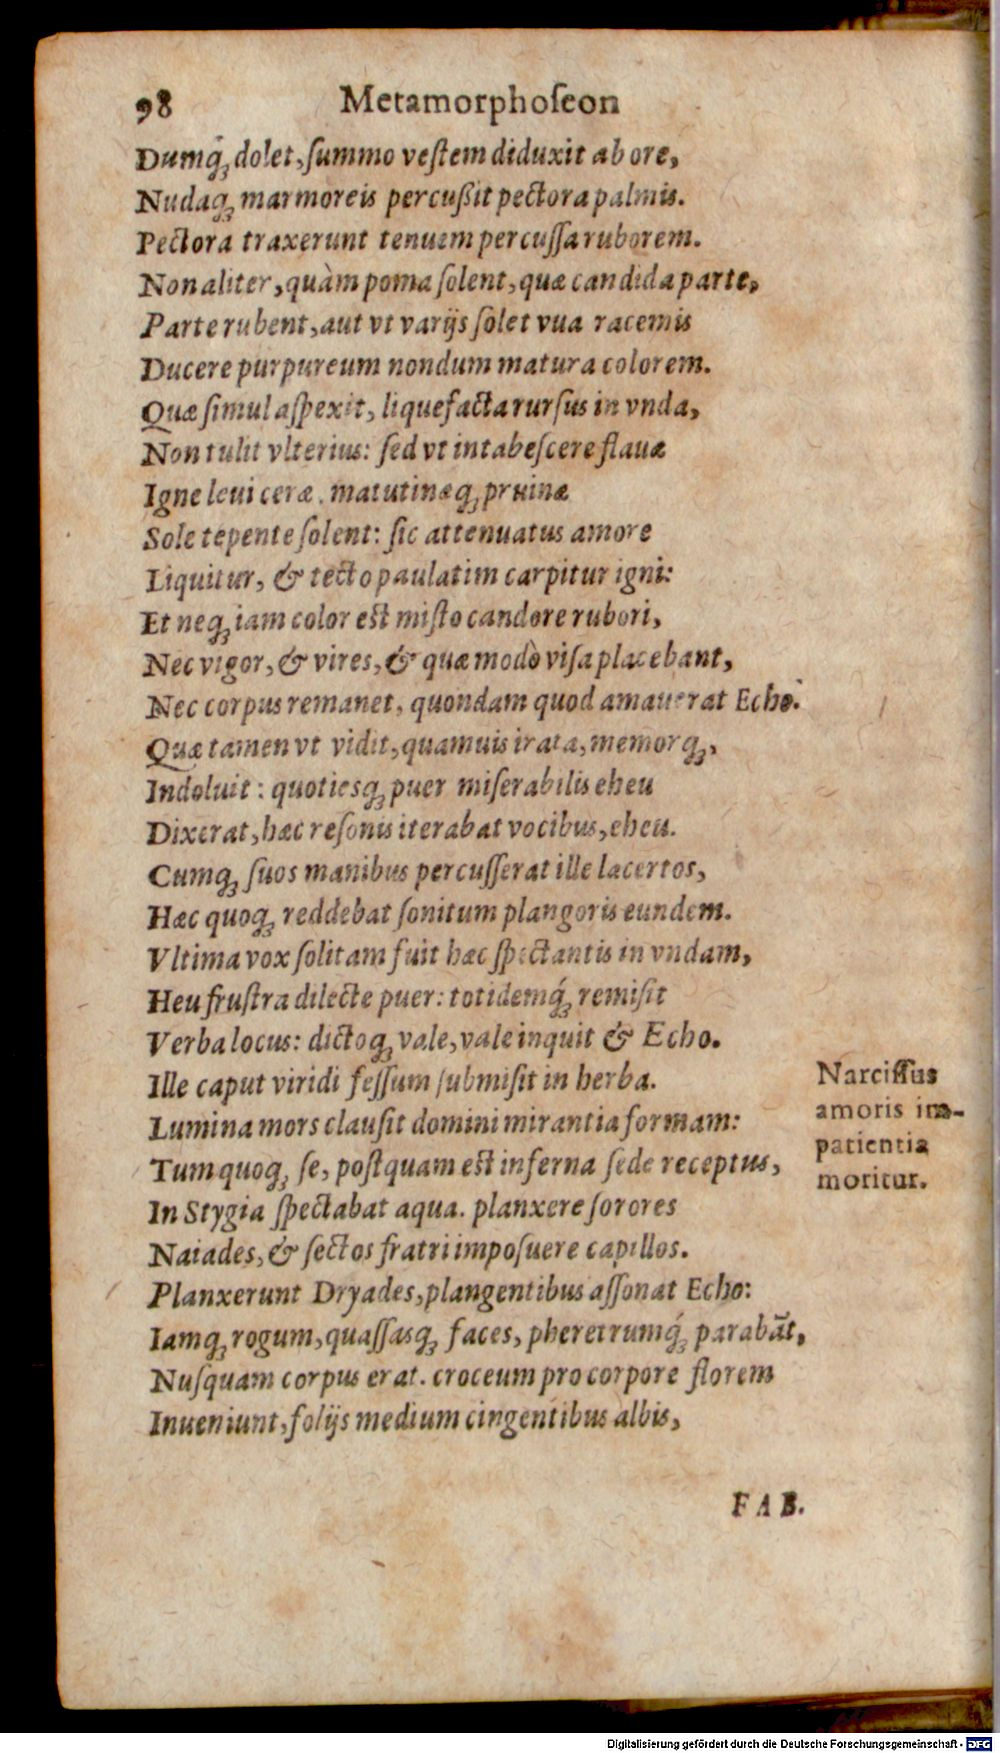 98 Metamorphoſeon
Dumq́ꝫ dolet, ſummo veſtem diduxit ab ore,
Nudaqꝫ marmoreis percußit pectora palmis.
Pectora traxerunt tenuem percuſſa ruborem.
Non aliter, quàm poma ſolent, quæ candida parte,
Parte rubent, aut vt varijs ſolet vua racemis
Ducere purpureum nondum matura colorem.
Quæ ſimul aſpexit, liquefacta rurſus in vnda,
Non tulit vlterius: ſed vt intabeſcere flauæ
Igne leui ceræ, matutinæqꝫ pruinæ
Sole tepente ſolent: ſic attenuatus amore
Liquitur, & tecto paulatim carpitur igni:
Et neqꝫ iam color eſt miſto candore rubori,
Nec vigor, & vires, & quæ modò viſa placebant,
Nec corpus remanet, quondam quod amauerat Echo.
Quæ tamen vt vidit, quamuis irata, memorqꝫ,
Indoluit: quotiesqꝫ puer miſerabilis eheu
Dixerat, hæc reſonis iterabat vocibus, eheu.
Cumqꝫ ſuos manibus percuſſerat ille lacertos,
Hæc quoqꝫ reddebat ſonitum plangoris eundem.
Vltima vox ſolitam fuit hæc ſpectantis in vndam,
Heu fruſtra dilecte puer: totidemq́ꝫ remiſit
Verba locus: dictoqꝫ vale, vale inquit & Echo.
Ille caput viridi feſſum ſubmiſit in herba.
Lumina mors clauſit domini mirantia formam:
Tum quoqꝫ ſe, poſtquam eſt inferna ſede receptus,
In Stygia ſpectabat aqua. planxere ſorores
Naiades, & ſectos fratri impoſuere capillos.
Planxerunt Dryades, plangentibus aſſonat Echo:
Iamqꝫ rogum, quaſſasqꝫ faces, pheretrumq́ꝫ parabãt,
Nuſquam corpus erat. croceum pro corpore florem
Inueniunt, folijs medium cingentibus albis,
Narciſſus
amoris im-
patientia
moritur.
FAB.
Digitalisierung gefördert durch die Deutsche Forschungsgemeinschaft - DFG